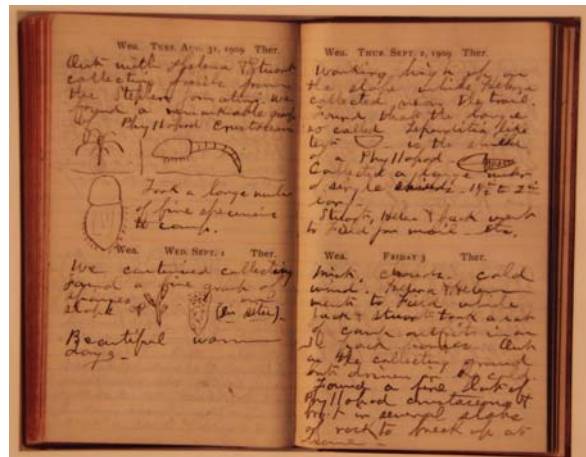 Wea. TUES. AUG. 31, 1909 Ther.
Out with Helena & Stuart
collecting fossils from
the Stephen formation. We
found a remarkable group
of Phyllopod Crustaceans
Took a large number
of fine specimens
to camp.
Wea. WED. SEPT. 1 Ther.
We continued collecting
found a fine group of
sponges on
slope (in situ).
Beautiful warm
days
Wea. THUR. SEPT. 2, 1909 Ther.
Working high up on
the slope while Helena
collected near the trail.
Found that the large
so called Leperditia like
test is the shield
of a Phyllopod
Collected a large number
of single shields 1½ to 2
long.
Stuart, Helen & Jack went
to Field for mail etc.
Wea. FRIDAY 3 Ther.
clouds. cold
wind. Helena & Helen
went to Field while
Jack & Stuart took a lot
of camp outfit in on
pack horses. Out
on the collecting ground
but driven in by cold.
Found a fine lot of
Phyllopod crustaceans &
brot in several slabs
of rock to break up at